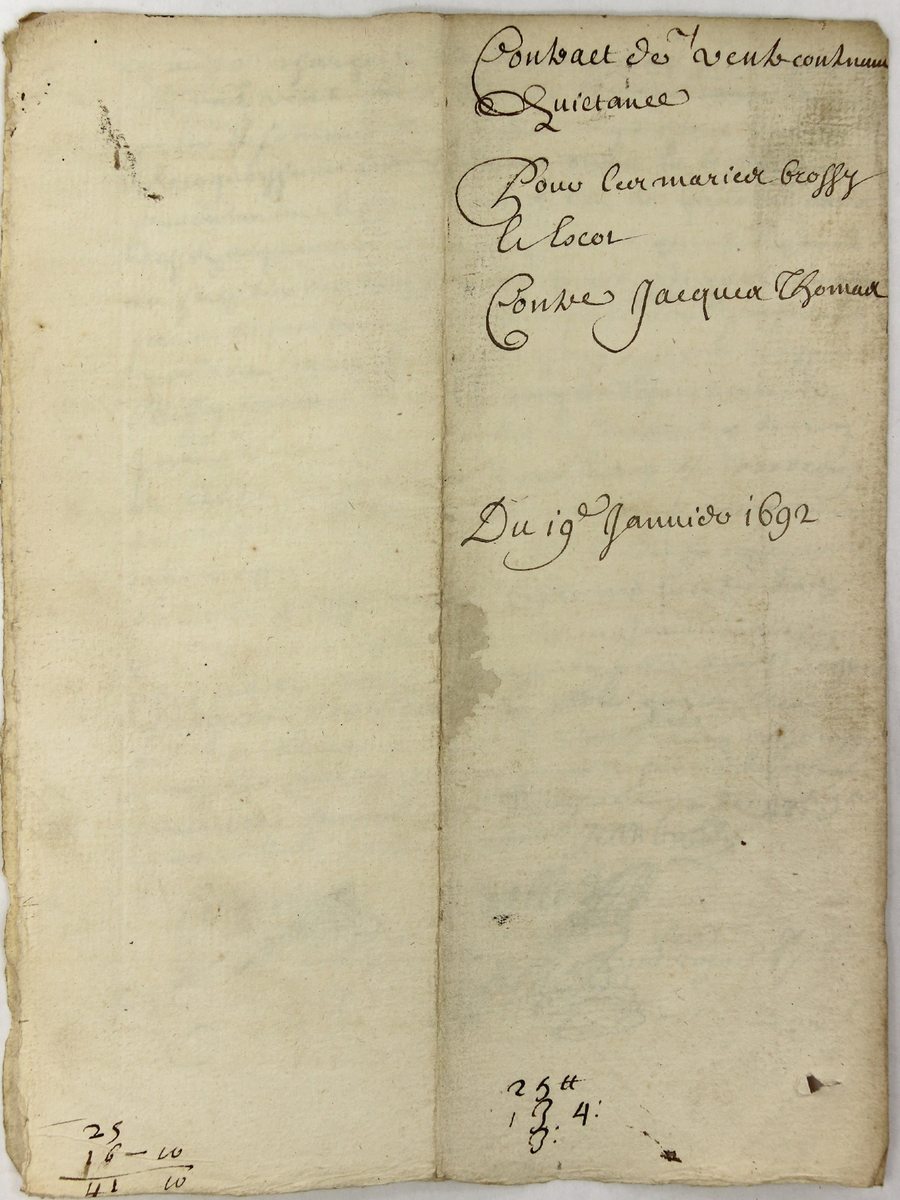 Contract de vente contenant
Quictance
Pour les mariez brossy
le
Contre Jacques Thomas
Du 19e Janvier 1692
25 tt
1 3 4:
3:
25
16 — 10
41 10